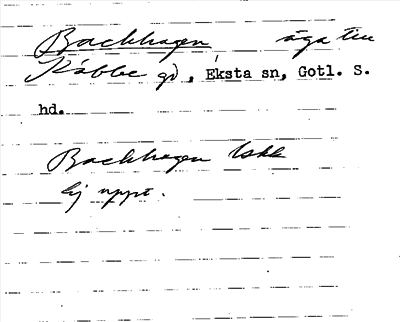 Backhagen äga till
Kabbe gd, Eksta sn, Gotl. S.
hd.
Backhagen Iskk
Ej uppt.